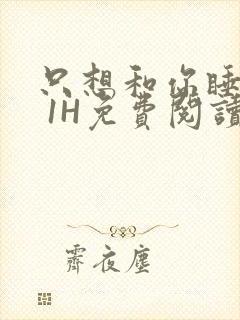 只想和你睡
1H免費閱讀
霽夜塵